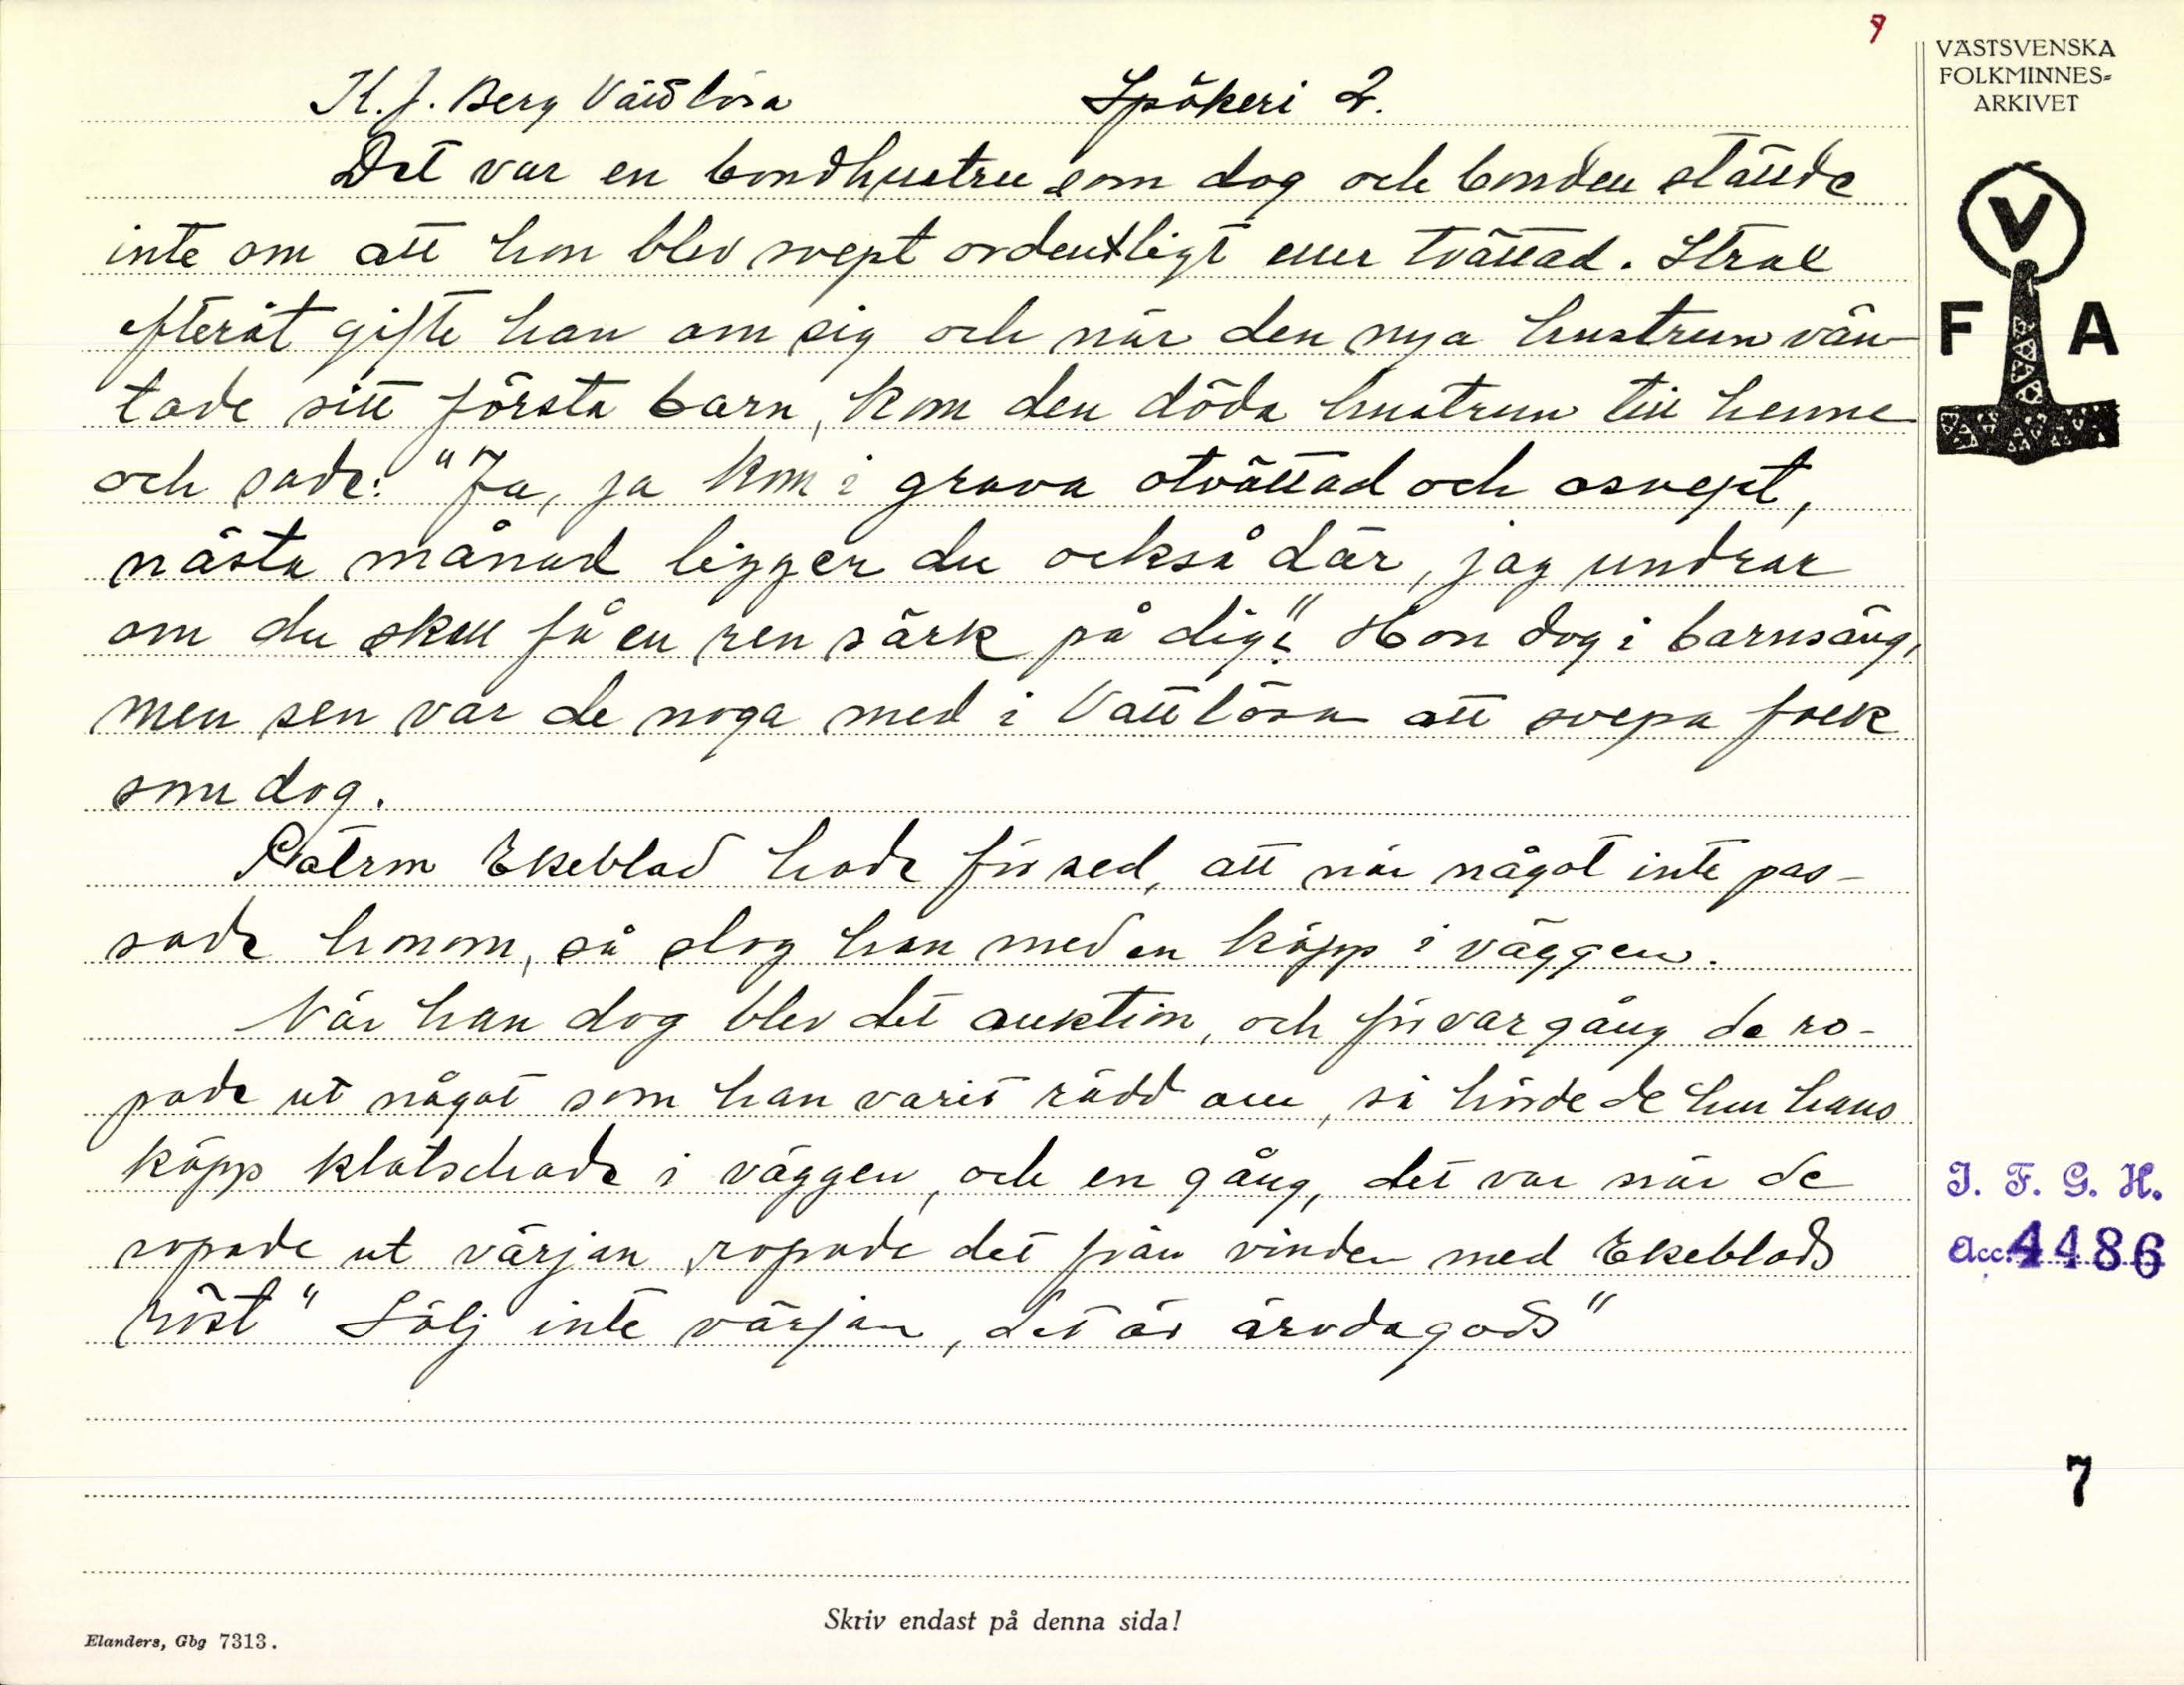 7
VÄSTSVENSKA
FOLKMINNES-
ARKIVET
K. J. Berg Vättlösa Spökeri 2.
Det var en bondhustru som dog och bonden ställde
inte om att hon blev svept ordentligt eller tvättad. Strax
efteråt gifte han om sig och när den nya hustrun vän-
tade sitt första barn, kom den döda hustrun till henne
och sade: "Ja, ja kom i grava otvättad och osvept,
nästa månad ligger du också där, jag undrar
om du skall få en ren särk på dig". Hon dog i barnsäng,
men sen var de noga med i Vättlösa att svepa folk
som dog.
Patron Ekeblad hade för sed, att när något inte pas-
sade honom, så slog han med en käpp i väggen.
När han dog blev det auktion, och för var gång de ro-
pade ut något som han varit rädd om, så hörde de hur hans
käpp klatschade i väggen, och en gång, det var när de
ropade ut värjan, ropade det från vinden med Ekeblads
röst "Sälj inte värjan, det är ärvdagods"
V
F A
I. F. G. H.
Acc. 4486
7
Skriv endast på denna sida!
Elanders, Gbg 7313.